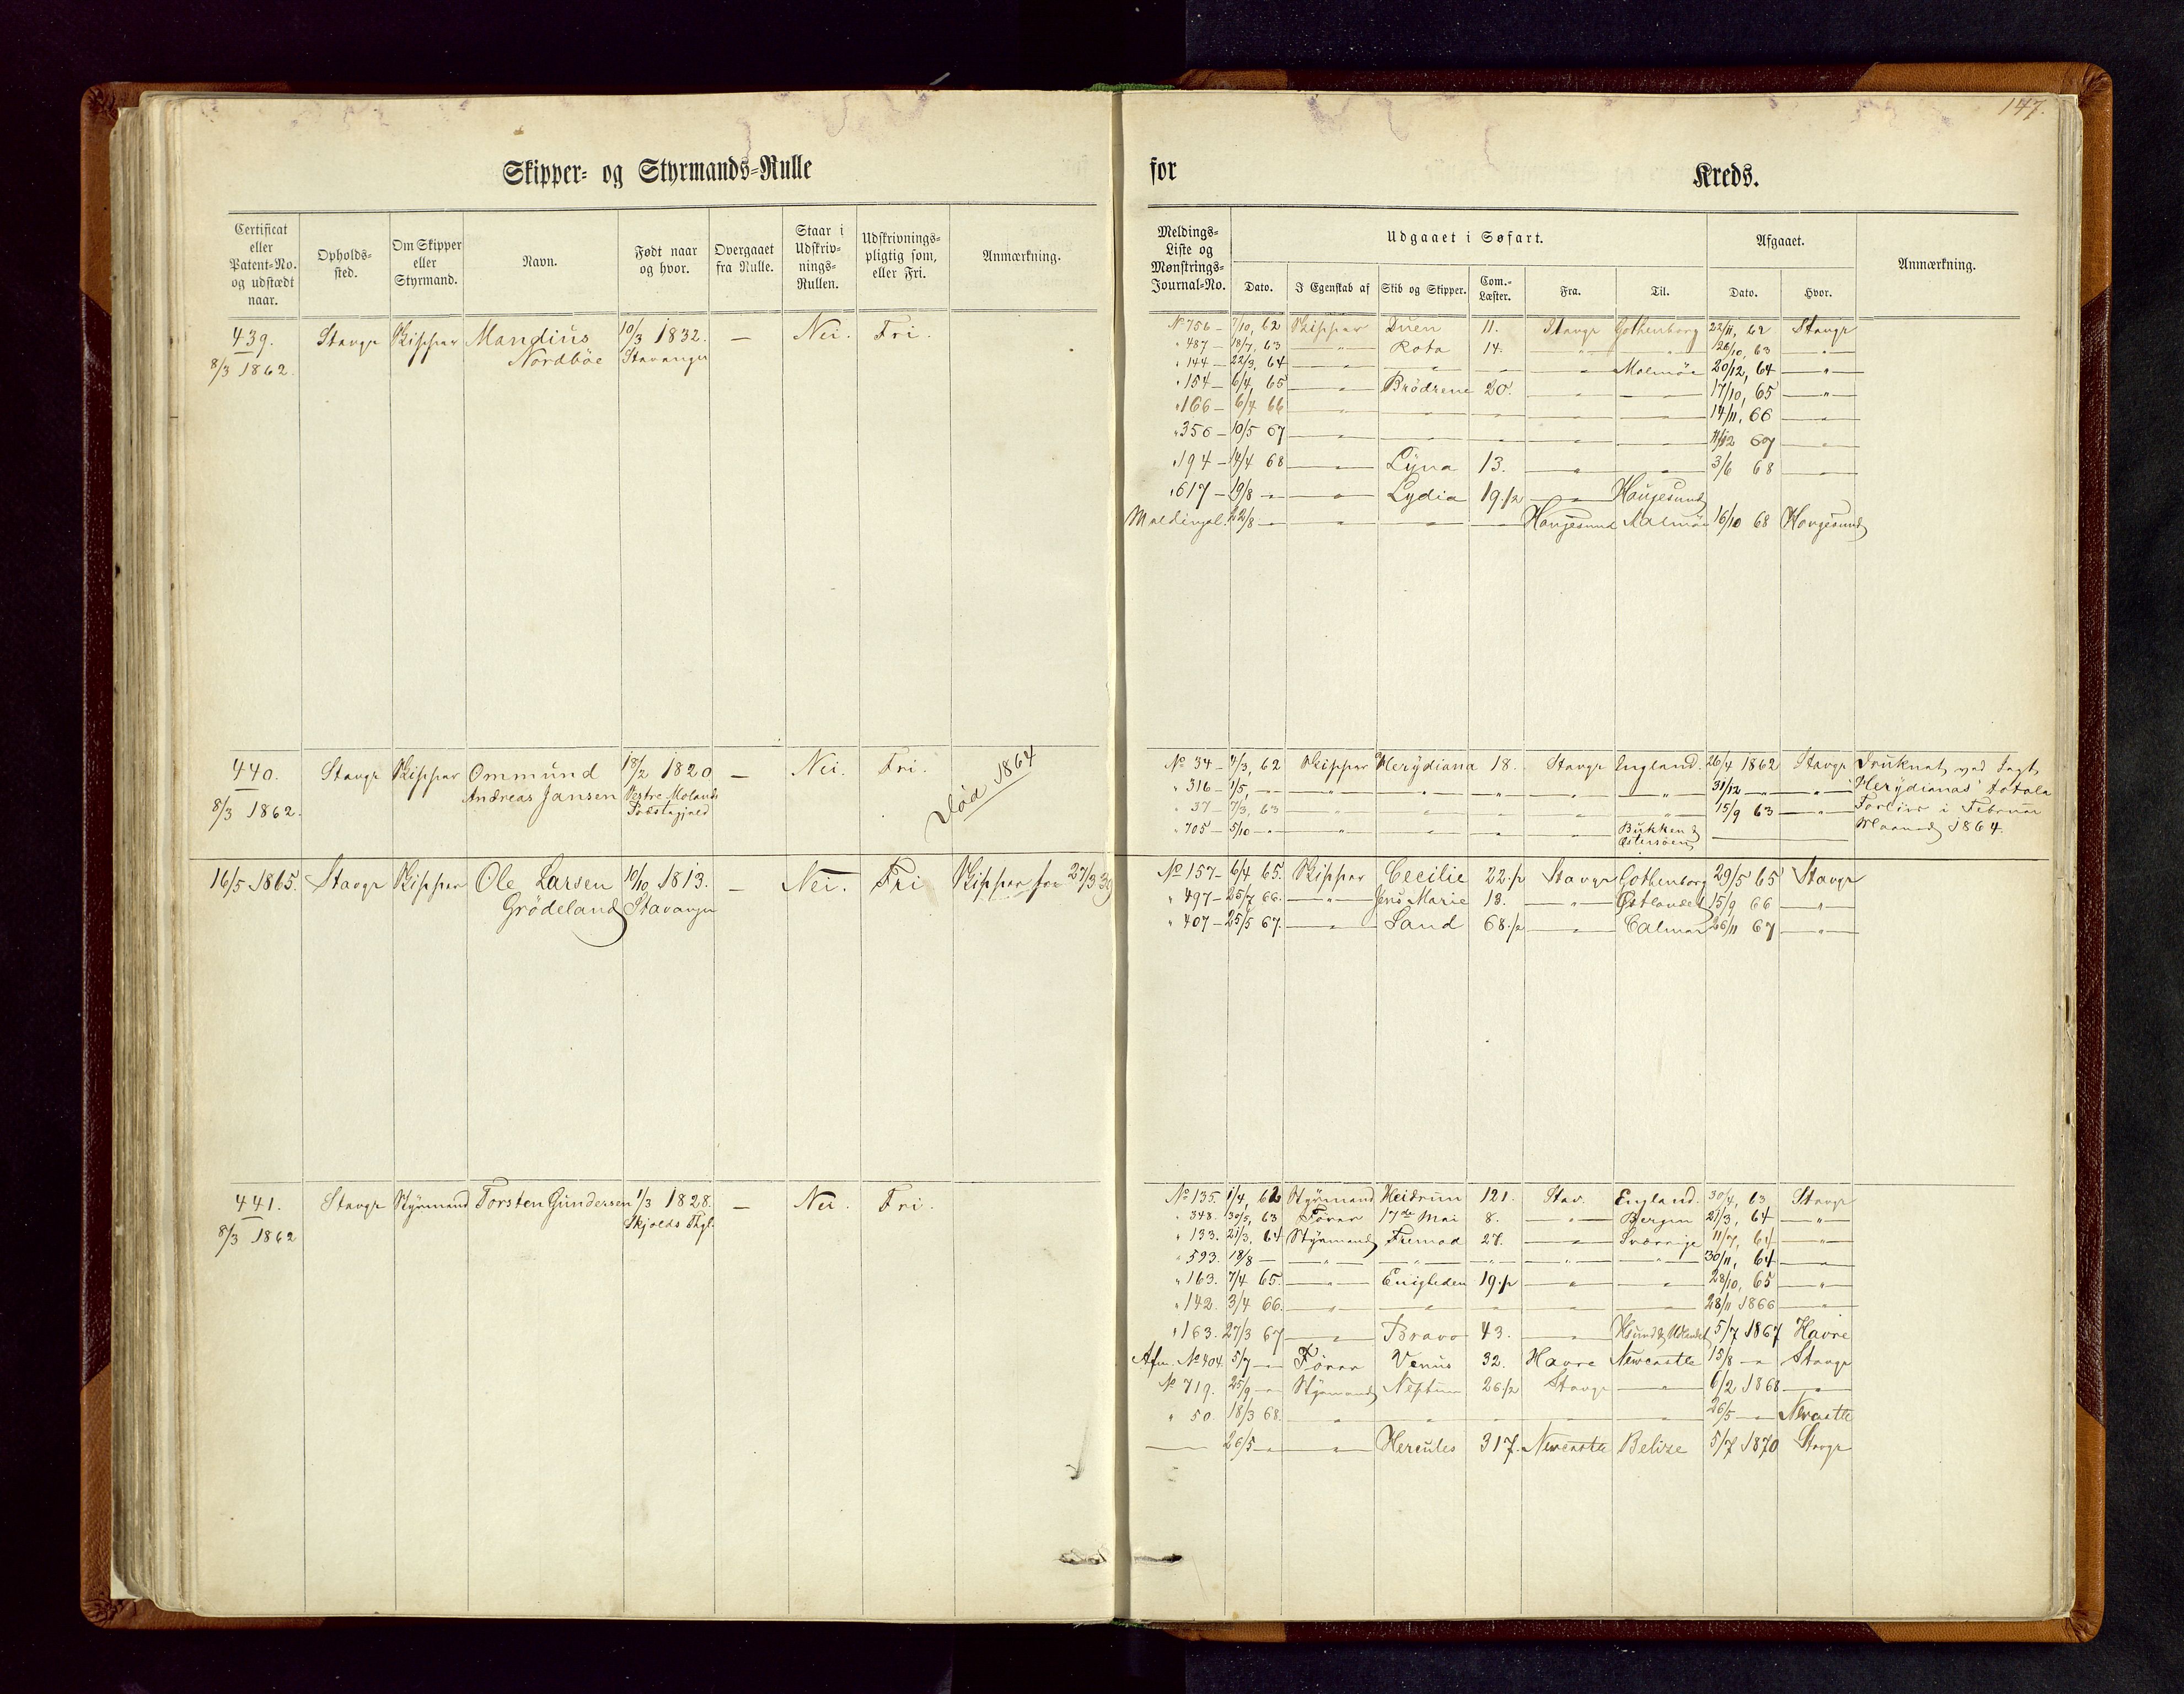 147.
Skipper- og Styrmands-Rulle for Kreds.
Certificat eller Patent-No. og udstædt naar. Opholds-sted. Om Skipper eller Styrmand. Navn. Født naar og hvor. Overgaaet fra Rulle. Staar i Udskriv-nings-Rullen. Udskrivnings-pligtig som, eller Fri. Anmærkning.
Meldings-Liste og Mønstrings-Journal-No. Udgaaet i Søfart. Afgaaet. Anmærkning.
Dato. I Egenskab af Skib og Skipper. Com.-Læster. Fra. Til. Dato. Hvor.
439. Stavgr Skipper Mandius 10/3 1832. — Nei. Fri.
8/3 1862. Nordböe Stavanger
No 756 — 7/10, 62 Skipper Duen 11. Stavgr Gothenborg 22/11, 62 Stavgr
" 487 — 18/7, 63 — " — Rota 14. — " — — " — 26/10, 63 — " —
" 144 — 22/3, 64 — " — — " — — — " — Malmöe 20/12, 64 — " —
" 154 — 6/4, 65 — " — Brödrene 20. — " — — " — 17/10, 65 — " —
" 166 — 6/4 66 — " — — " — — " — — " — — " — 14/11, 66 — " —
" 356 — 10/5 67 — " — — " — — " — — " — — " — 11/12 67 — " —
" 194 — 14/4 68 — " — Lyna 13. — " — — " — 3/6 68 — " —
" 617 — 19/8 — " — — " — Lydia 19.½ — " — Haugesund
Meldingsl. 22/8 — " — — " — — " — — Haugesund Malmöe 16/10 68 Haugesund
440. Stavgr Skipper Ommund 18/2 1820 — Nei. Fri. Död 1864
8/3 1862. Andreas Jansen Vestre Molands
Præstegjeld
No 34 — 7/3, 62 Skipper Merydiana 18. Stavgr England. 26/4 1862 Stavgr Druknet ved Jagt
" 316 — 1/5, — " — — " — — " — — " — — " — — " — 31/12 — " — — " — Merydianas totale
" 37 — 7/3, 63 — " — — " — — " — — " — — " — 15/9 63 — " — Forliis i Februar
" 705 — 5/10 — " — — " — — " — — " — — " — Bukken & Maaned 1864.
Østersöen
16/5 1865. Stavgr Skipper Ole Larsen 10/10 1813. — Nei. Fri Skipper fra 27/3 39
Grödeland Stavanger
No 157 — 6/4 65. Skipper Cecilie 22.½ Stavgr Gothenborg 29/5 65 Stavgr
" 497 — 25/7 66. — " — Jens Marie 18. — " — Østlandet 15/9 66 — " —
" 407 — 25/5 67. — " — Sand 68.½ — " — Calmar 26/11 67 — " —
441. Stavgr Styrmand Torsten Gundersen 1/3 1828. — Nei. Fri.
8/3 1862 Skjolds Thgl.
No 135. 1/4, 62 Styrmand Heidrun 121. Stav. England. 30/4, 63 Stavgr
" 348. 30/5, 63 Förer 17de Mai 8. — " — Bergen 21/3, 64 — " —
" 133. 21/3, 64 Styrmand Fremad 27. — " — Sverrige 11/7, 64 — " —
" 593. 18/8 — " — — " — — " — — " — — " — 30/11, 64 — " —
" 163. 7/4 65. — " — Enigheden 19.½ — " — — " — 28/10, 65 — " —
" 142. 3/4 66. — " — — " — — " — — " — — " — 28/11 1866 — " —
" 163. 27/3 67 — " — Bravo 43. — " — Hsund & Udlandet 5/7 1867 Havre
Afm. No 404. 5/7 — " — Förer Venus 32. Havre Newcastle 15/8 — " — Stavgr
No 719. 25/9 — " — Styrmand Neptun 26.½ Stavgr — " — 6/2 1868 — " —
" 50. 18/3 68. — " — — " — — " — — " — — " — 26/5 — " — Newcastle
— 26/5 — " — — " — Hercules 317. Newcastle Belize 5/7 1870 Stavgr